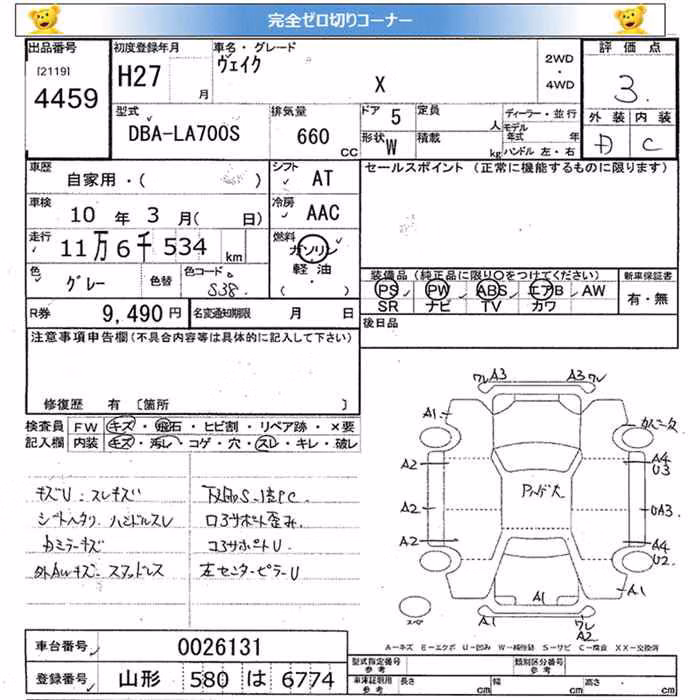 完全ゼロ切りコーナー
出品番号
[2119]
4459
初度登録年月
H27 月
車名・グレード
ヴェイク
X
2WD
・
4WD
評価点
3
外装 内装
D C
型式
DBA-LA700S
排気量
660 CC
ドア 5
形状 W
定員 人
積載 kg
ディーラー・並行
モデル年式 年
ハンドル 左・右
車歴
自家用・( )
シフト
AT
車検
10 年 3 月( 日)
冷房
AAC
走行
11万6千534 km
燃料
ガソリン
軽油
( ・ )
色
グレー
色替
色コードNo.
S38
R券 9,490円
名変通知期限 月 日
セールスポイント (正常に機能するものに限ります)
装備品(純正品に限り○をつけてください)
PS PW ABS エアB AW
SR ナビ TV カワ
新車保証書
有・無
後日品
注意事項申告欄(不具合内容等は具体的に記入して下さい)
修復歴 有 〔箇所 〕
検査員記入欄
FW キズ・飛石・ヒビ割・リペア跡・×要
内装 キズ・汚レ・コゲ・穴・スレ・キレ・破レ
キズU:スレキズ
シートヘタリ ハンドルスレ
ドアミラーキズ
外AWキズ スタッドレス
下廻りS・錆PC.
ロ3サポート歪み
コ3サポートU
左センターピラーU
ワレ A3 A3 ワレ
A1
カバー欠
A2
A4
U3
A2
UA3
A2
A4
U2
パンク穴
A1
A1
ワレ
A2
スペア
A=キズ E=エクボ U=凹み W=補修跡 S=サビ C=腐食 XX=交換済
車台番号 0026131
登録番号 山形 580 は 6774
型式指定番号
参考
類別区分番号
参考
車庫証明用
参考
長さ cm
幅 cm
高さ cm